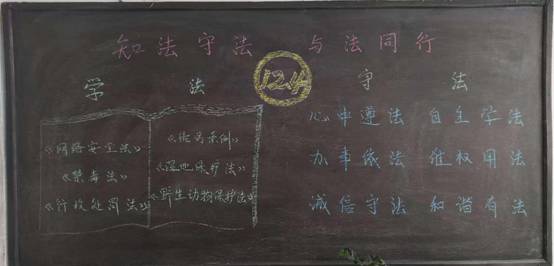 知法守法 与法同行
12.4
学 法
《网络安全法》
《禁毒法》
《行政处罚法》
《湿地保护法》
《野生动物保护法》
守 法
心中遵法 自主学法
办事依法 维权用法
诚信守法 和谐有法